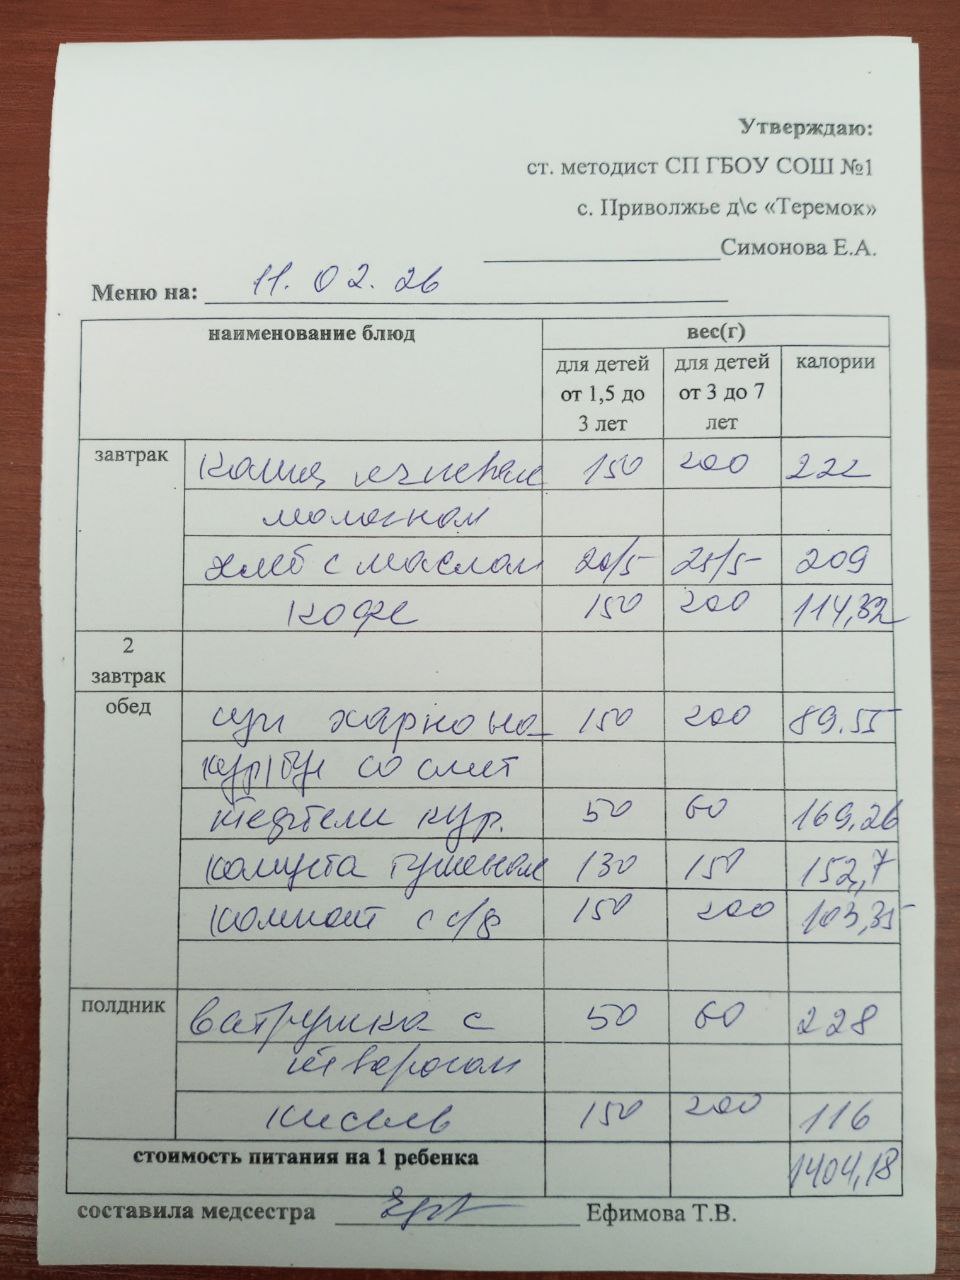 Утверждаю:
ст. методист СП ГБОУ СОШ №1
с. Приволжье д\с «Теремок»
Симонова Е.А.
Меню на: 11.02.26
наименование блюд вес(г)
для детей от 1,5 до 3 лет для детей от 3 до 7 лет калории
завтрак каша ячневая 150 200 222
молочная
хлеб с маслом 20/5 25/5 209
кофе 150 200 114,32
2 завтрак
обед щи 150 200 89.55
кур/бул со смет
тефтели кур. 50 60 169,26
капуста тушеная 130 150 152,7
компот с с/ф 150 200 103,35
полдник ватрушка с 50 60 228
творогом
кисель 150 200 116
стоимость питания на 1 ребенка 1404,18
составила медсестра Ефимова Т.В.